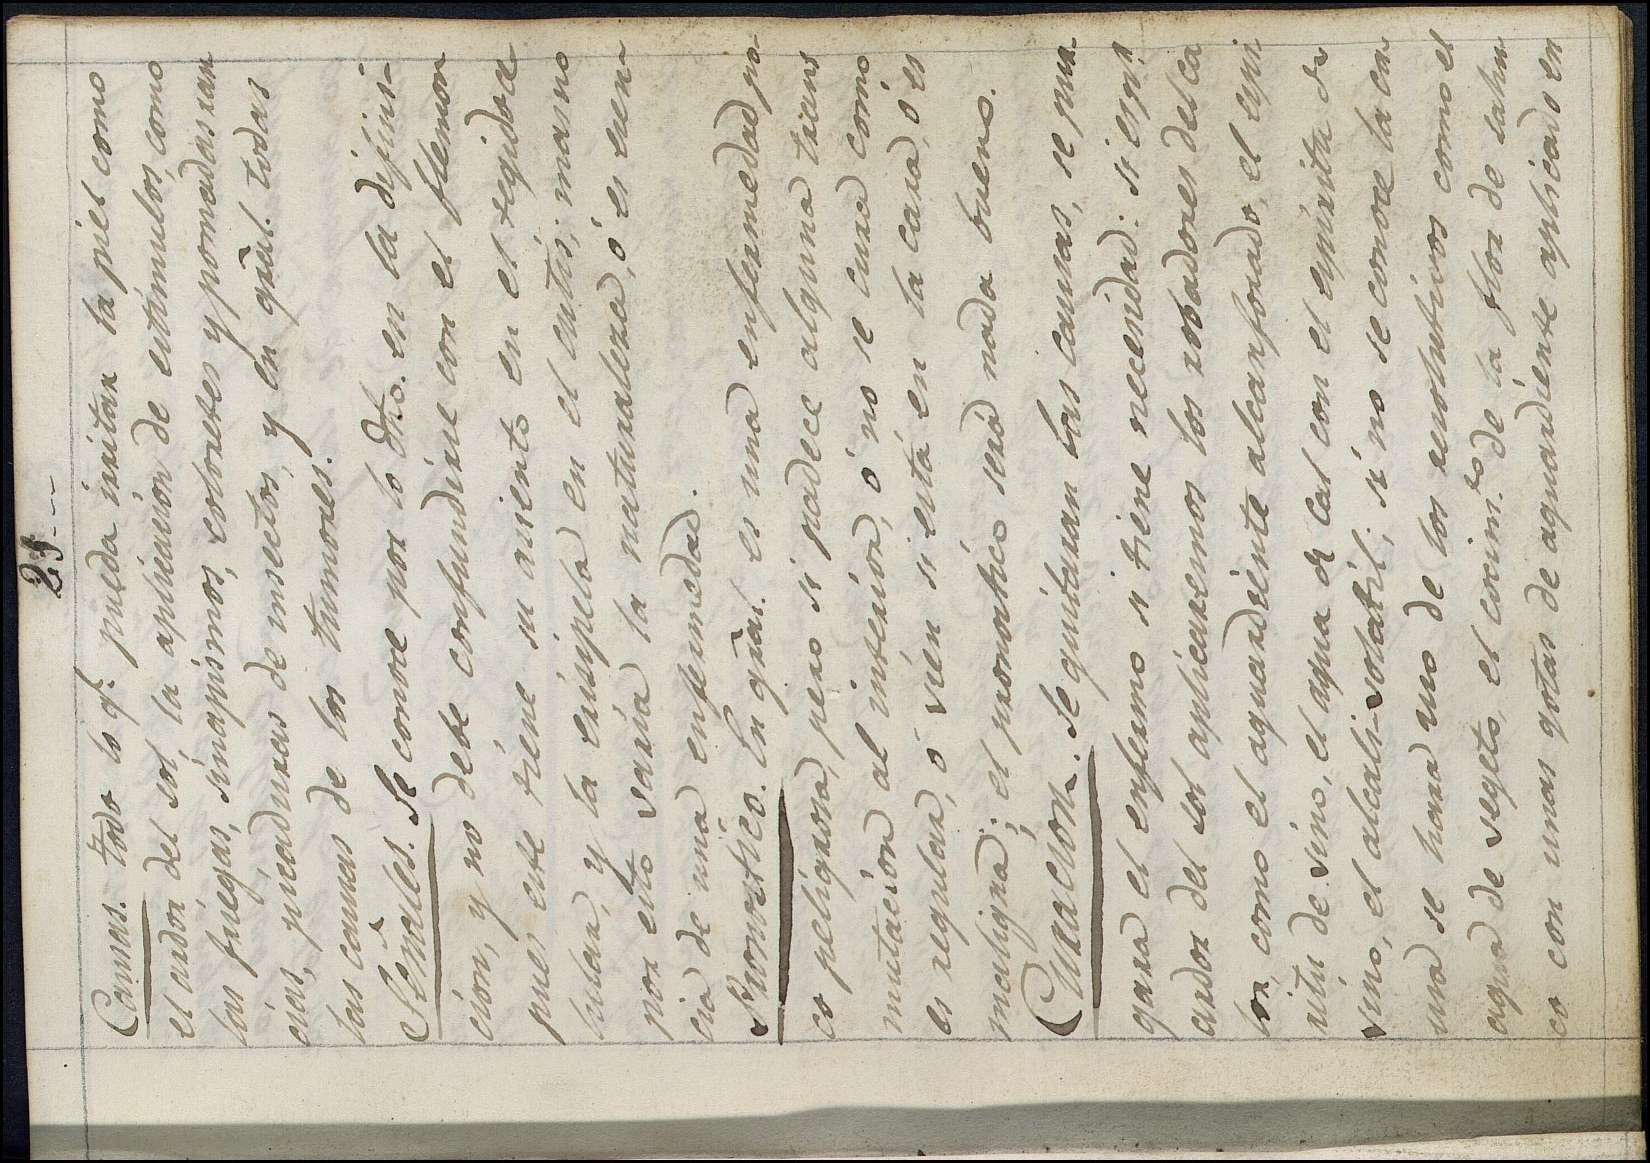 25
Causas. todo lo q.e pueda irritar la piel como
el ardor del sol, la aplicacion de estimulos, como
las friegas, sinapismos, estoraxes y pomadas ran
cias, picaduras de insectos, y en gràl. todas
las causas de los tumores.
Señales. Se conoce por lo dho. en la difini-
cion, y no debe confundirse con el flemon
pues este tiene su asiento en el tegido ce
lular, y la erisipela en el cutis; mas no
por esto varia la naturaleza, ó és esen
cia de una enfermedad.
Pronostico. En gràl. es una enfermedad po
co peligrosa, pero si padece alguna trans
mutacion al interior, ó no se cura como
es regular, ó vién si está en la cara, ó es
maligna; el pronostico será nada bueno.
Curacion. Se quitaran las causas, se pur
gara el enfermo si tiene necesidad: si es pr.
ardor del sol aplicaremos los robadores del ca
lor, como el aguardiénte alcanforado, el espi
ritu de vino, el agua de cal con el espiritu de
vino, el alcali-volatil; si no se conoce la cau
sa se hara uso de los resolutivos como el
agua de vegeto, el cocim.to de la flor de sahu
co con unas gotas de aguardiente aplicado en